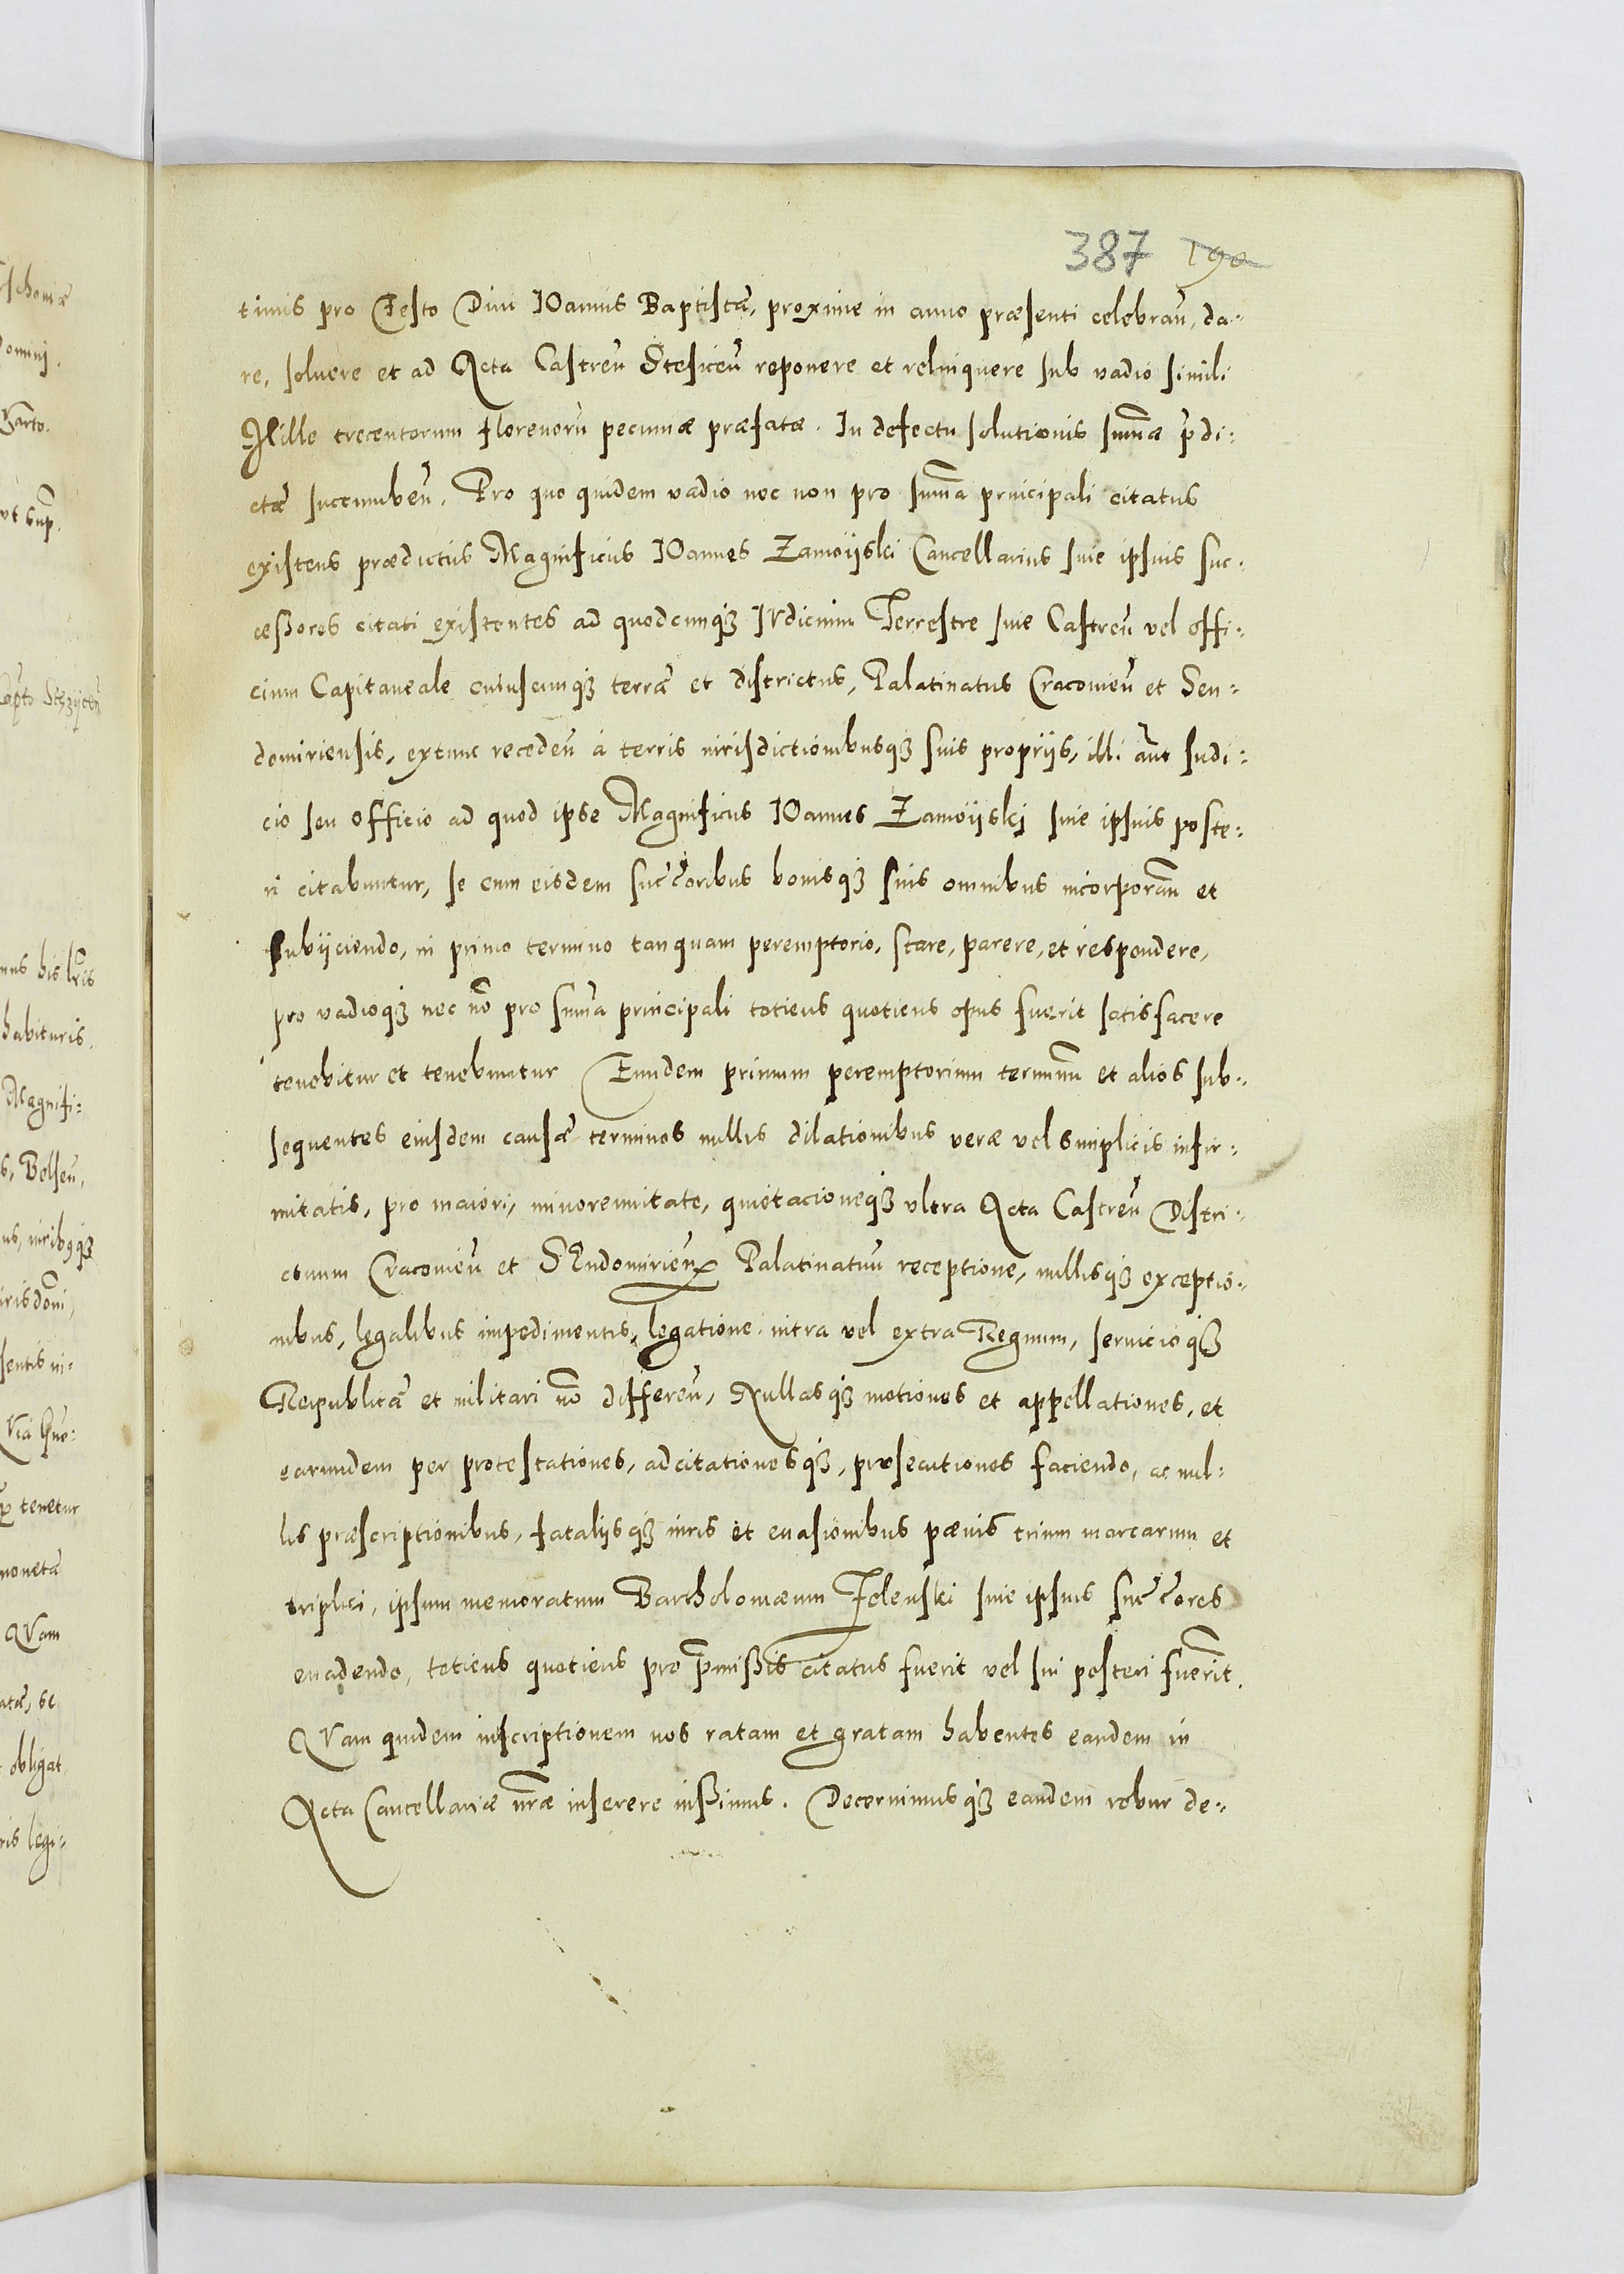 387 190
timis pro Festo Diui IOannis Baptistæ, proxime in anno præsenti celebrañ, da-
re, soluere et ad Acta Castreñ Stesiceñ reponere et relinquere sub vadio simili
Mille trecentorum florenorũ pecuniæ præfatæ. In defectu solutionis sum̃æ p̃di-
ctæ succumbeñ. Pro quo quidem vadio nec non pro sum̃a principali citatus
existens prædictus Magnificus IOannes Zamoijski Cancellarius siue ipsius suc-
ceßores citati existentes ad quodcunqꝫ IVdicium Terrestre siue Castreñ vel offi-
cium Capitaneale cuiuscunqꝫ terræ et districtus, Palatinatus Cracouieñ et Sen-
domiriensis, extunc recedeñ à terris iurisdictionibusqꝫ suis propriis, illi aũt Iudi-
cio seu officio ad quod ipse Magnificus IOannes Zamoijskj siue ipsius poste-
ri citabuntur, se cum eisdem succ̃oribus bonisqꝫ suis omnibus incorporañ et
subijciendo, in primo termino tanquam peremptorio, stare, parere, et respondere,
pro vadioqꝫ nec nõ pro sum̃a principali totiens quotiens opus fuerit satisfacere
tenebitur et tenebuntur Eundem primum peremptorium terminũ et alios sub-
sequentes eiusdem causæ terminos nullis dilationibus veræ vel simplicis infir-
mitatis, pro maiori, minorennitate, quietacioneqꝫ vltra Acta Castreñ Distri-
ctuum Cracouieñ et SEndomirieñ Palatinatuũ receptione, nullisqꝫ exceptio-
nibus, legalibus impedimentis, legatione intra vel extra Regnum, seruicioqꝫ
Reipublicæ et militari nõ differeñ, Nullasqꝫ motiones et appellationes, et
earundem per protestationes, adcitationesqꝫ, prosecutiones faciendo, ac nul-
lis præscriptionibus, fatalijsqꝫ iuris et euasionibus pœnis trium marcarum et
triplici, ipsum memoratum Bartholomæum Zelenski siue ipsius succ̃ores
euadendo, totiens quotiens pro p̃mißis citatus fuerit vel sui posteri fuer̃it.
QVam quidem inscriptionem nos ratam et gratam habentes eandem in
Acta Cancellariæ nr̃æ inserere iußimus. Decernimusqꝫ eandem robur de-